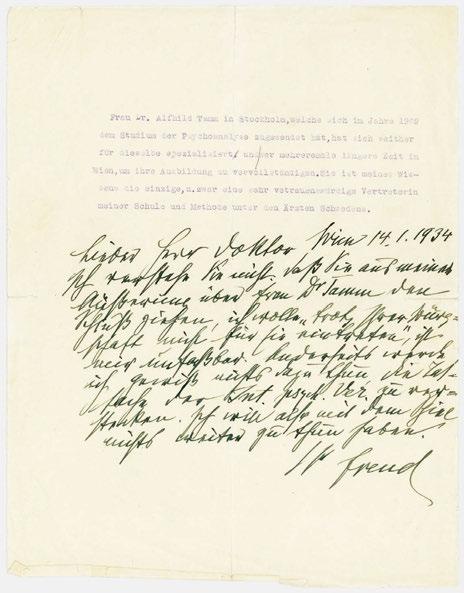 Frau Dr. Alfhild Tamm in Stockholm,welche sich im Jahre 1909
dem Studium der Psychoanalyse zugewendet hat,hat sich seither
für dieselbe spezialisiert/ und war mehreremale längere Zeit in
Wien,um ihre Ausbildung zu vervollständigen.Sie ist meines Wis-
sens die einzige,u.zwar eine sehr vertrauenswürdige Vertreterin
meiner Schule und Methode unter den Ärzten Schwedens.
Wien 14.1.1934
Lieber Herr Doktor
Ich verstehe Sie nicht. Daß Sie aus meiner
Äußerung über Frau Dr Tamm den
Schluß ziehen, ich wolle „trotz Ihrer Bürg=
schaft nicht für sie eintreten“, ist
mir unfaßbar. Anderseits werde
ich gewiß nichts dazu thun, die
der Int. psych. Ver. zu
Ich will also mit dem
nichts weiter zu thun haben.
Ihr Freud